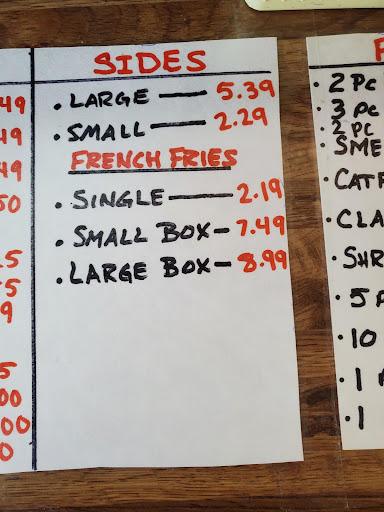 SIDES
• LARGE — 5.39
• SMALL — 2.29
FRENCH FRIES
• SINGLE — 2.19
• SMALL BOX — 7.49
• LARGE BOX — 8.99
49
49
49
50
5
5
9
5
00
00
0
• 2 PC
• 3 PC
• 2 PC
SME
• CAT
• CLA
• SHR
• 5
• 10
• 1
• 1